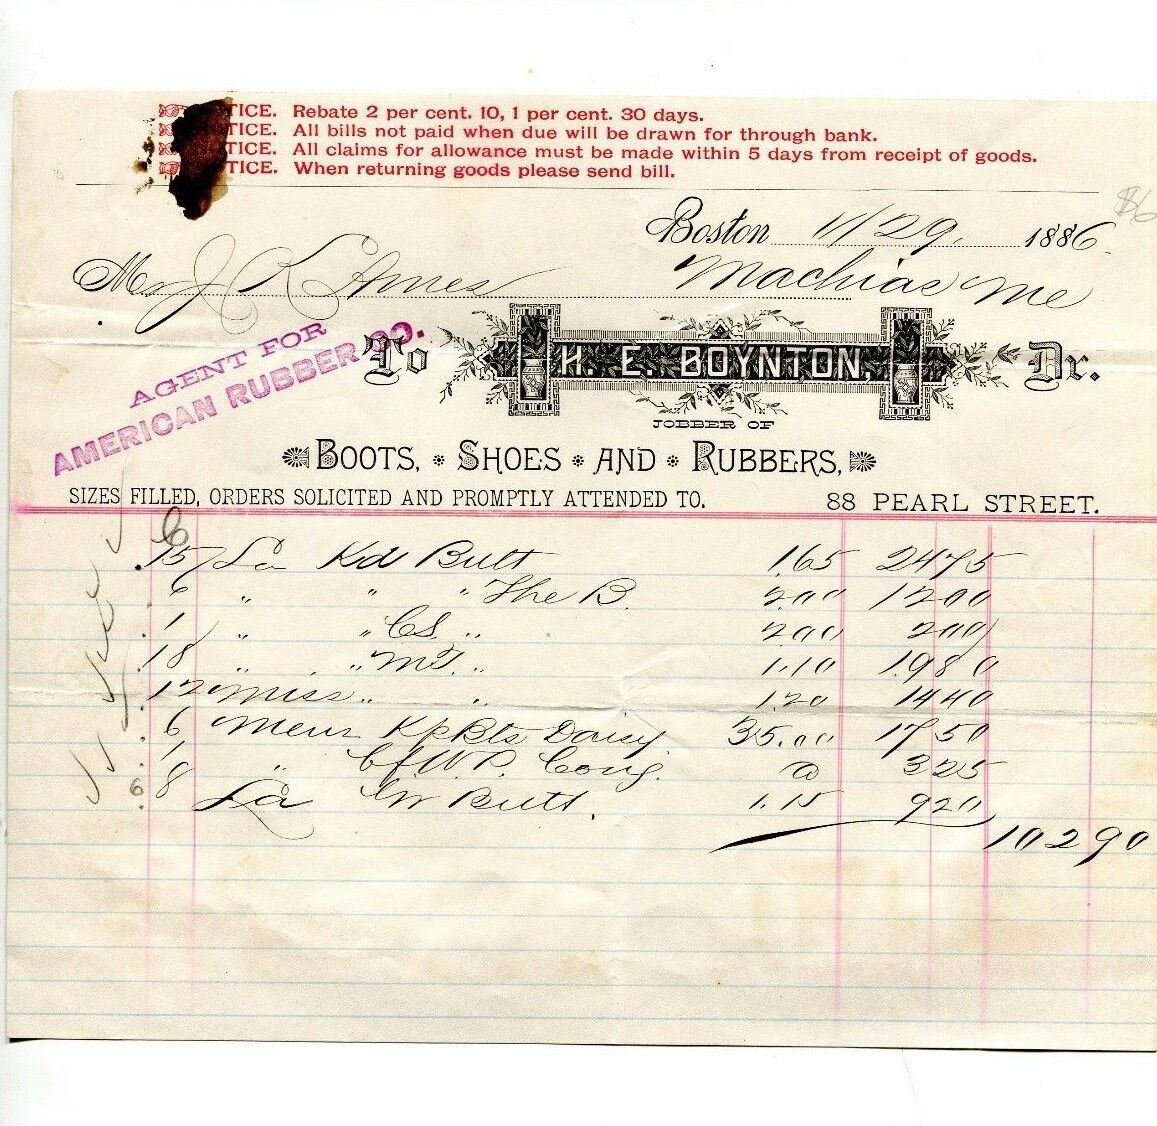 TICE. Rebate 2 per cent. 10, 1 per cent. 30 days.
TICE. All bills not paid when due will be drawn for through bank.
TICE. All claims for allowance must be made within 5 days from receipt of goods.
TICE. When returning goods please send bill.
$6
Boston 11/29, 1886
Mr J. K. Ames Machias Me
AGENT FOR
AMERICAN RUBBER CO.
To H. E. BOYNTON, Dr.
JOBBER OF
BOOTS, SHOES AND RUBBERS,
SIZES FILLED, ORDERS SOLICITED AND PROMPTLY ATTENDED TO. 88 PEARL STREET.
6
15 La Kid Butt 1.65 24 75
6 " " " The B. 2.00 12 00
1 " " CS " 2.00 2 00
18 " " MT " 1.10 19 80
12 Miss " " 1.20 14 40
6 Mens Kp Bts Daisy 35.00 17 50
1 " Cf W.P. Cong. a 3 25
6 8 La Gr Butt. 1.15 9 20
102 90